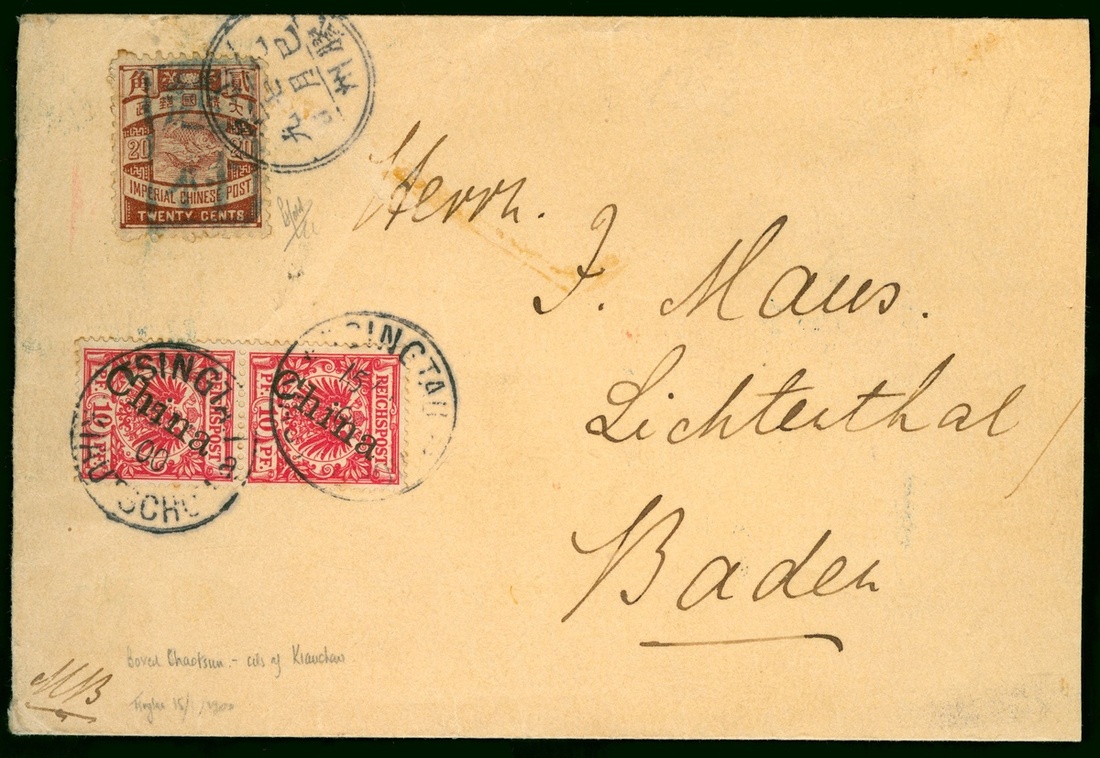 角 貳
政 郵 國 清 大
20 20
IMPERIAL CHINESE POST
TWENTY CENTS
九月
膠州
Herrn.
J. Maus.
Lichterthal
Baden
TSINGTAU
KIAUTSCHOU
00
China
REICHSPOST
10 PF. 10
TSINGTAU
China
REICHSPOST
10 PF. 10
boxed Chaotsun - cds of Kiauchau
15/1 1900
MB